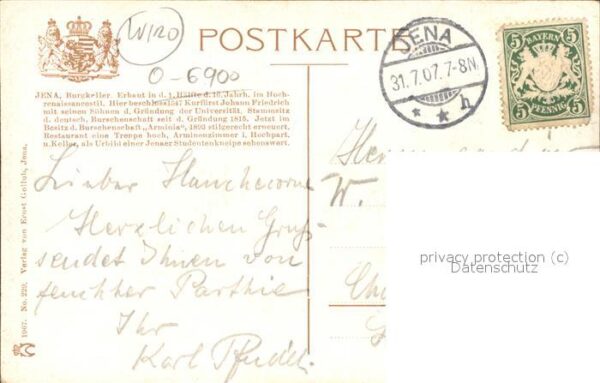 WIRO
O-6900
POSTKARTE
JENA, Burgkeller. Erbaut in d. 1. Hälfte d. 16. Jahrh. im Hoch-
renaissancestil. Hier beschloss 1547 Kurfürst Johann Friedrich
mit seinen Söhnen d. Gründung der Universität. Stammsitz
d. deutsch. Burschenschaft seit d. Gründung 1815. Jetzt im
Besitz d. Burschenschaft "Arminia", 1893 stilgerecht erneuert.
Restaurant eine Treppe hoch, Arminenzimmer i. Hochpart.
u. Keller, als Urbild einer Jenaer Studentenkneipe sehenswert.
JENA
31.7.07.7-8N.
* * h
BAYERN
5 5
5 PFENNIG 5
Lieber
Herzlichen Gruss
sendet Ihnen von
feuchter Parthie
Ihr
Karl
Herrn
W.
privacy protection (c)
Datenschutz
1907. No. 220. Verlag von Ernst Gollub, Jena.